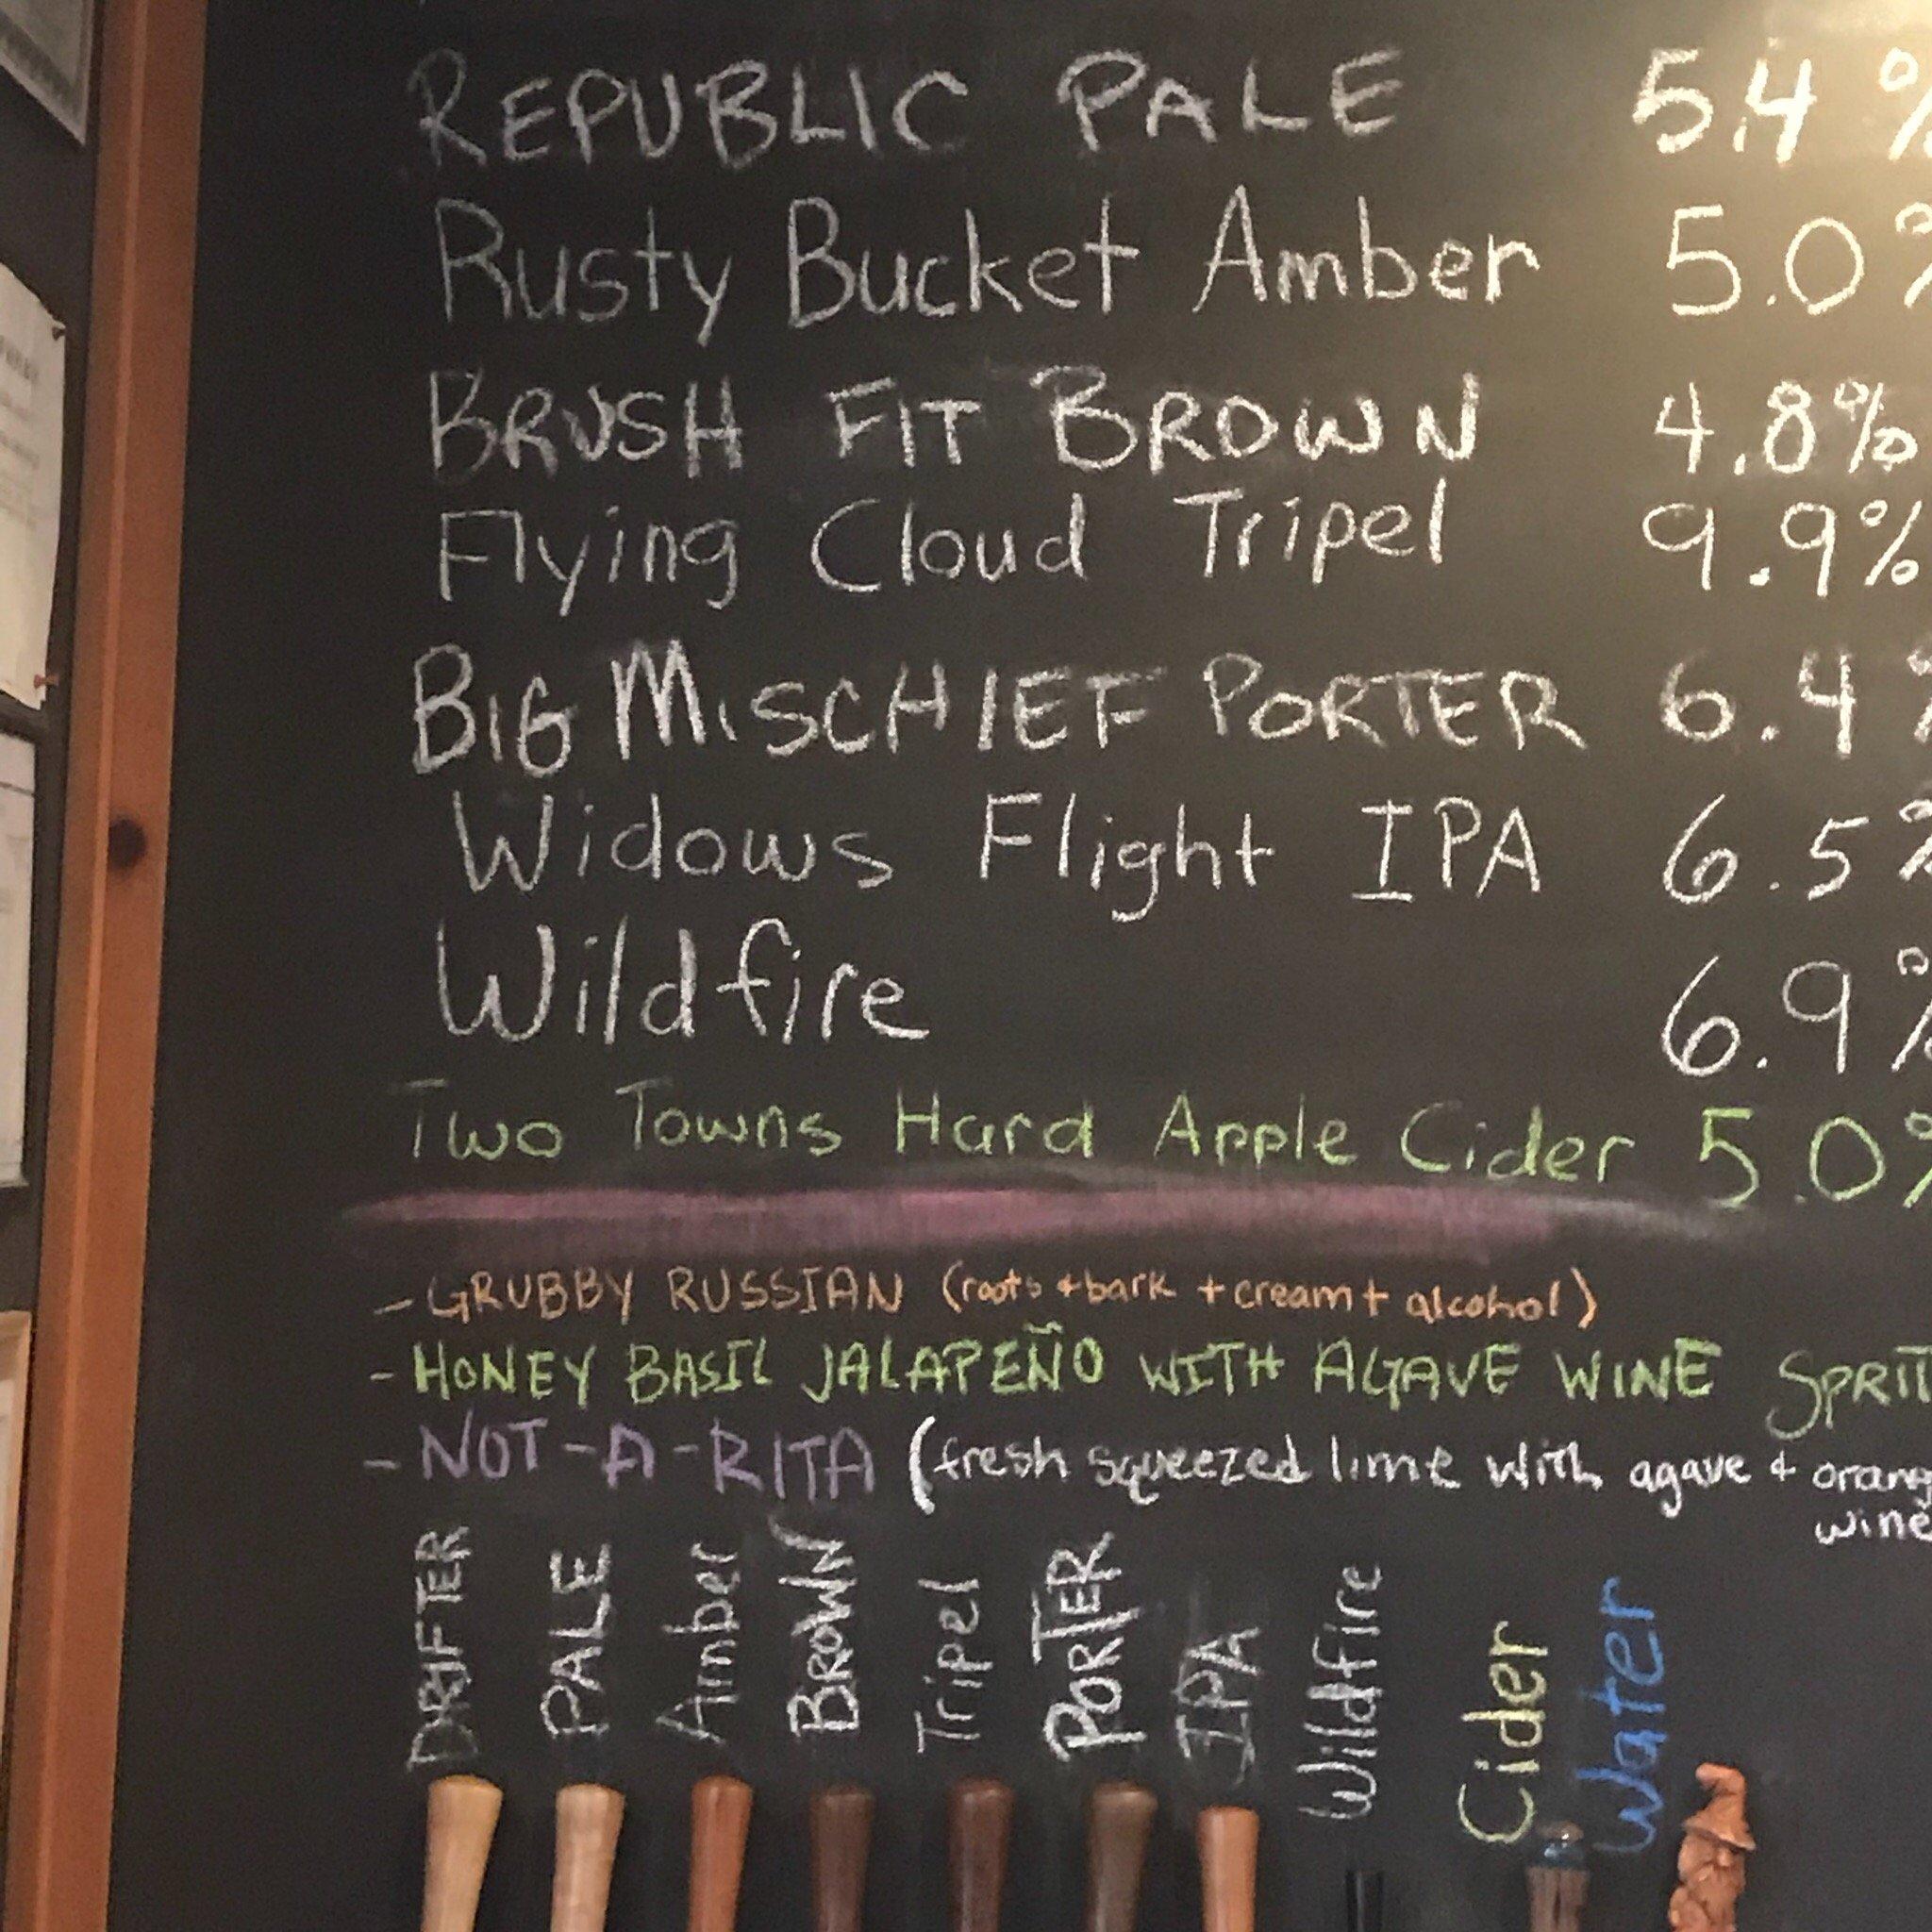 REPUBLIC PALE 5.4%
Rusty Bucket Amber 5.0%
BRUSH FIT BROWN 4.8%
Flying Cloud Tripel 9.9%
BIG MISCHIEF PORTER 6.4%
Widows Flight IPA 6.5%
Wildfire 6.9%
Two Towns Hard Apple Cider 5.0%
- GRUBBY RUSSIAN (roots + bark + cream + alcohol)
- HONEY BASIL JALAPEÑO WITH AGAVE WINE
- NOT-A-RITA (fresh squeezed lime with agave +
wine
DRIFTER
PALE
Amber
BROWN
Tripel
PORTER
IPA
Wildfire
Cider
Water